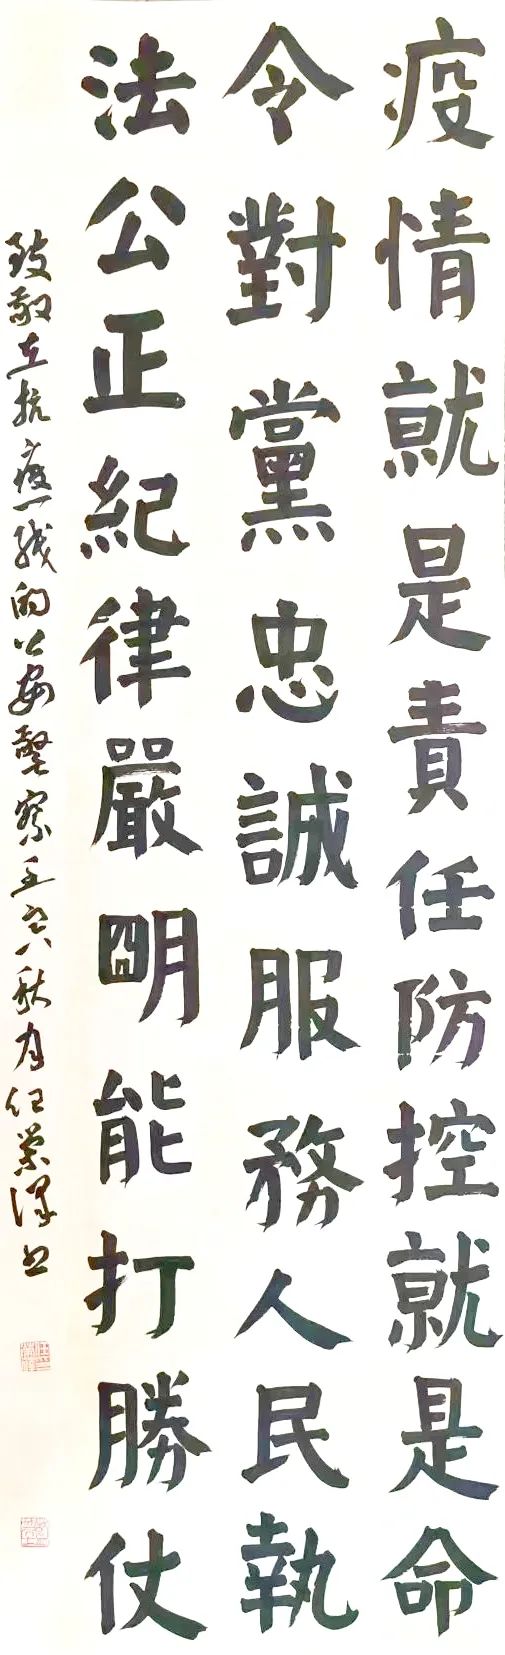 疫情就是責任防控就是命
令對黨忠誠服務人民執
法公正紀律嚴明能打勝仗
致敬在抗疫一线的公安警察 秋月任荣泽书